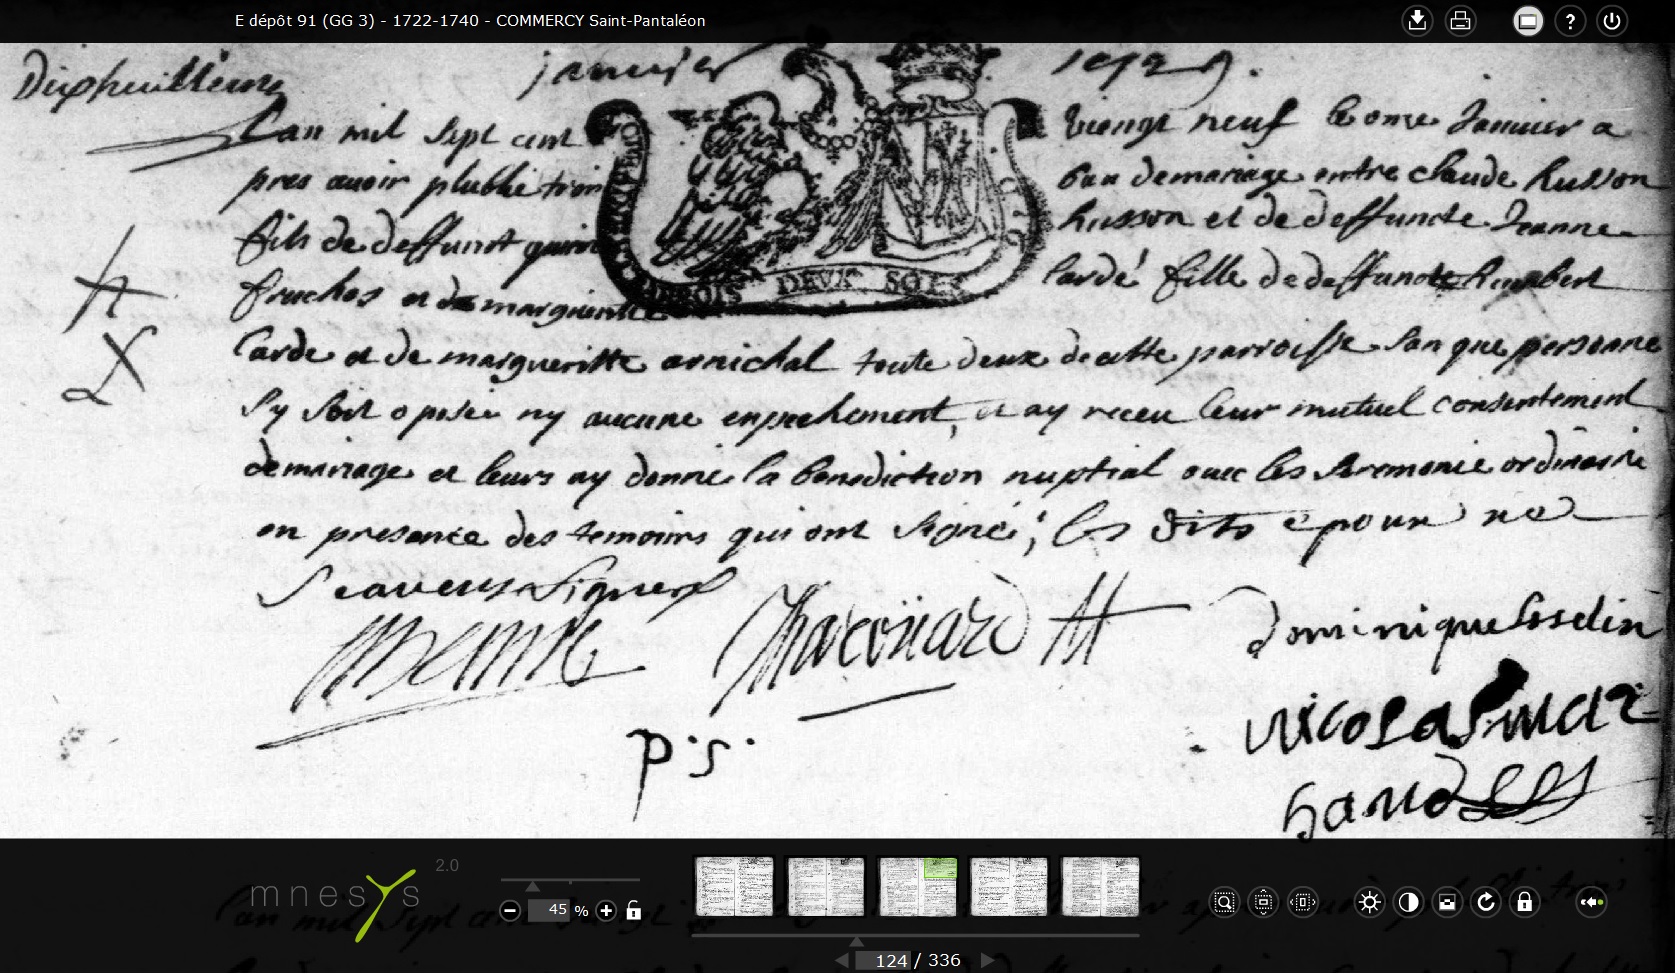 E dépôt 91 (GG 3) - 1722-1740 - COMMERCY Saint-Pantaléon
Dixhuitieme janvier 1729.
Lan mil sept cent viengt neuf le onze Janvier a
pres avoir plublié trois ban demariage entre claude husson
fils de deffunct husson et de deffuncte Jeanne
fruchos et de marguerite lardé fille de deffuncte humbert
larde et de margueritte arnichal toute deux de cette parroisse san que personne
sy soit oposée ny aucune enpechement, et ay receu leur mutuel consentement
demariage et leurs ay donne la benediction nuptial avec les seremonie ordinaire
en presence des temoins qui ont signé; les dits epoux ne
scavens signer
dominique
p.s.
nicolas
mnesys 2.0
45 %
124 / 336